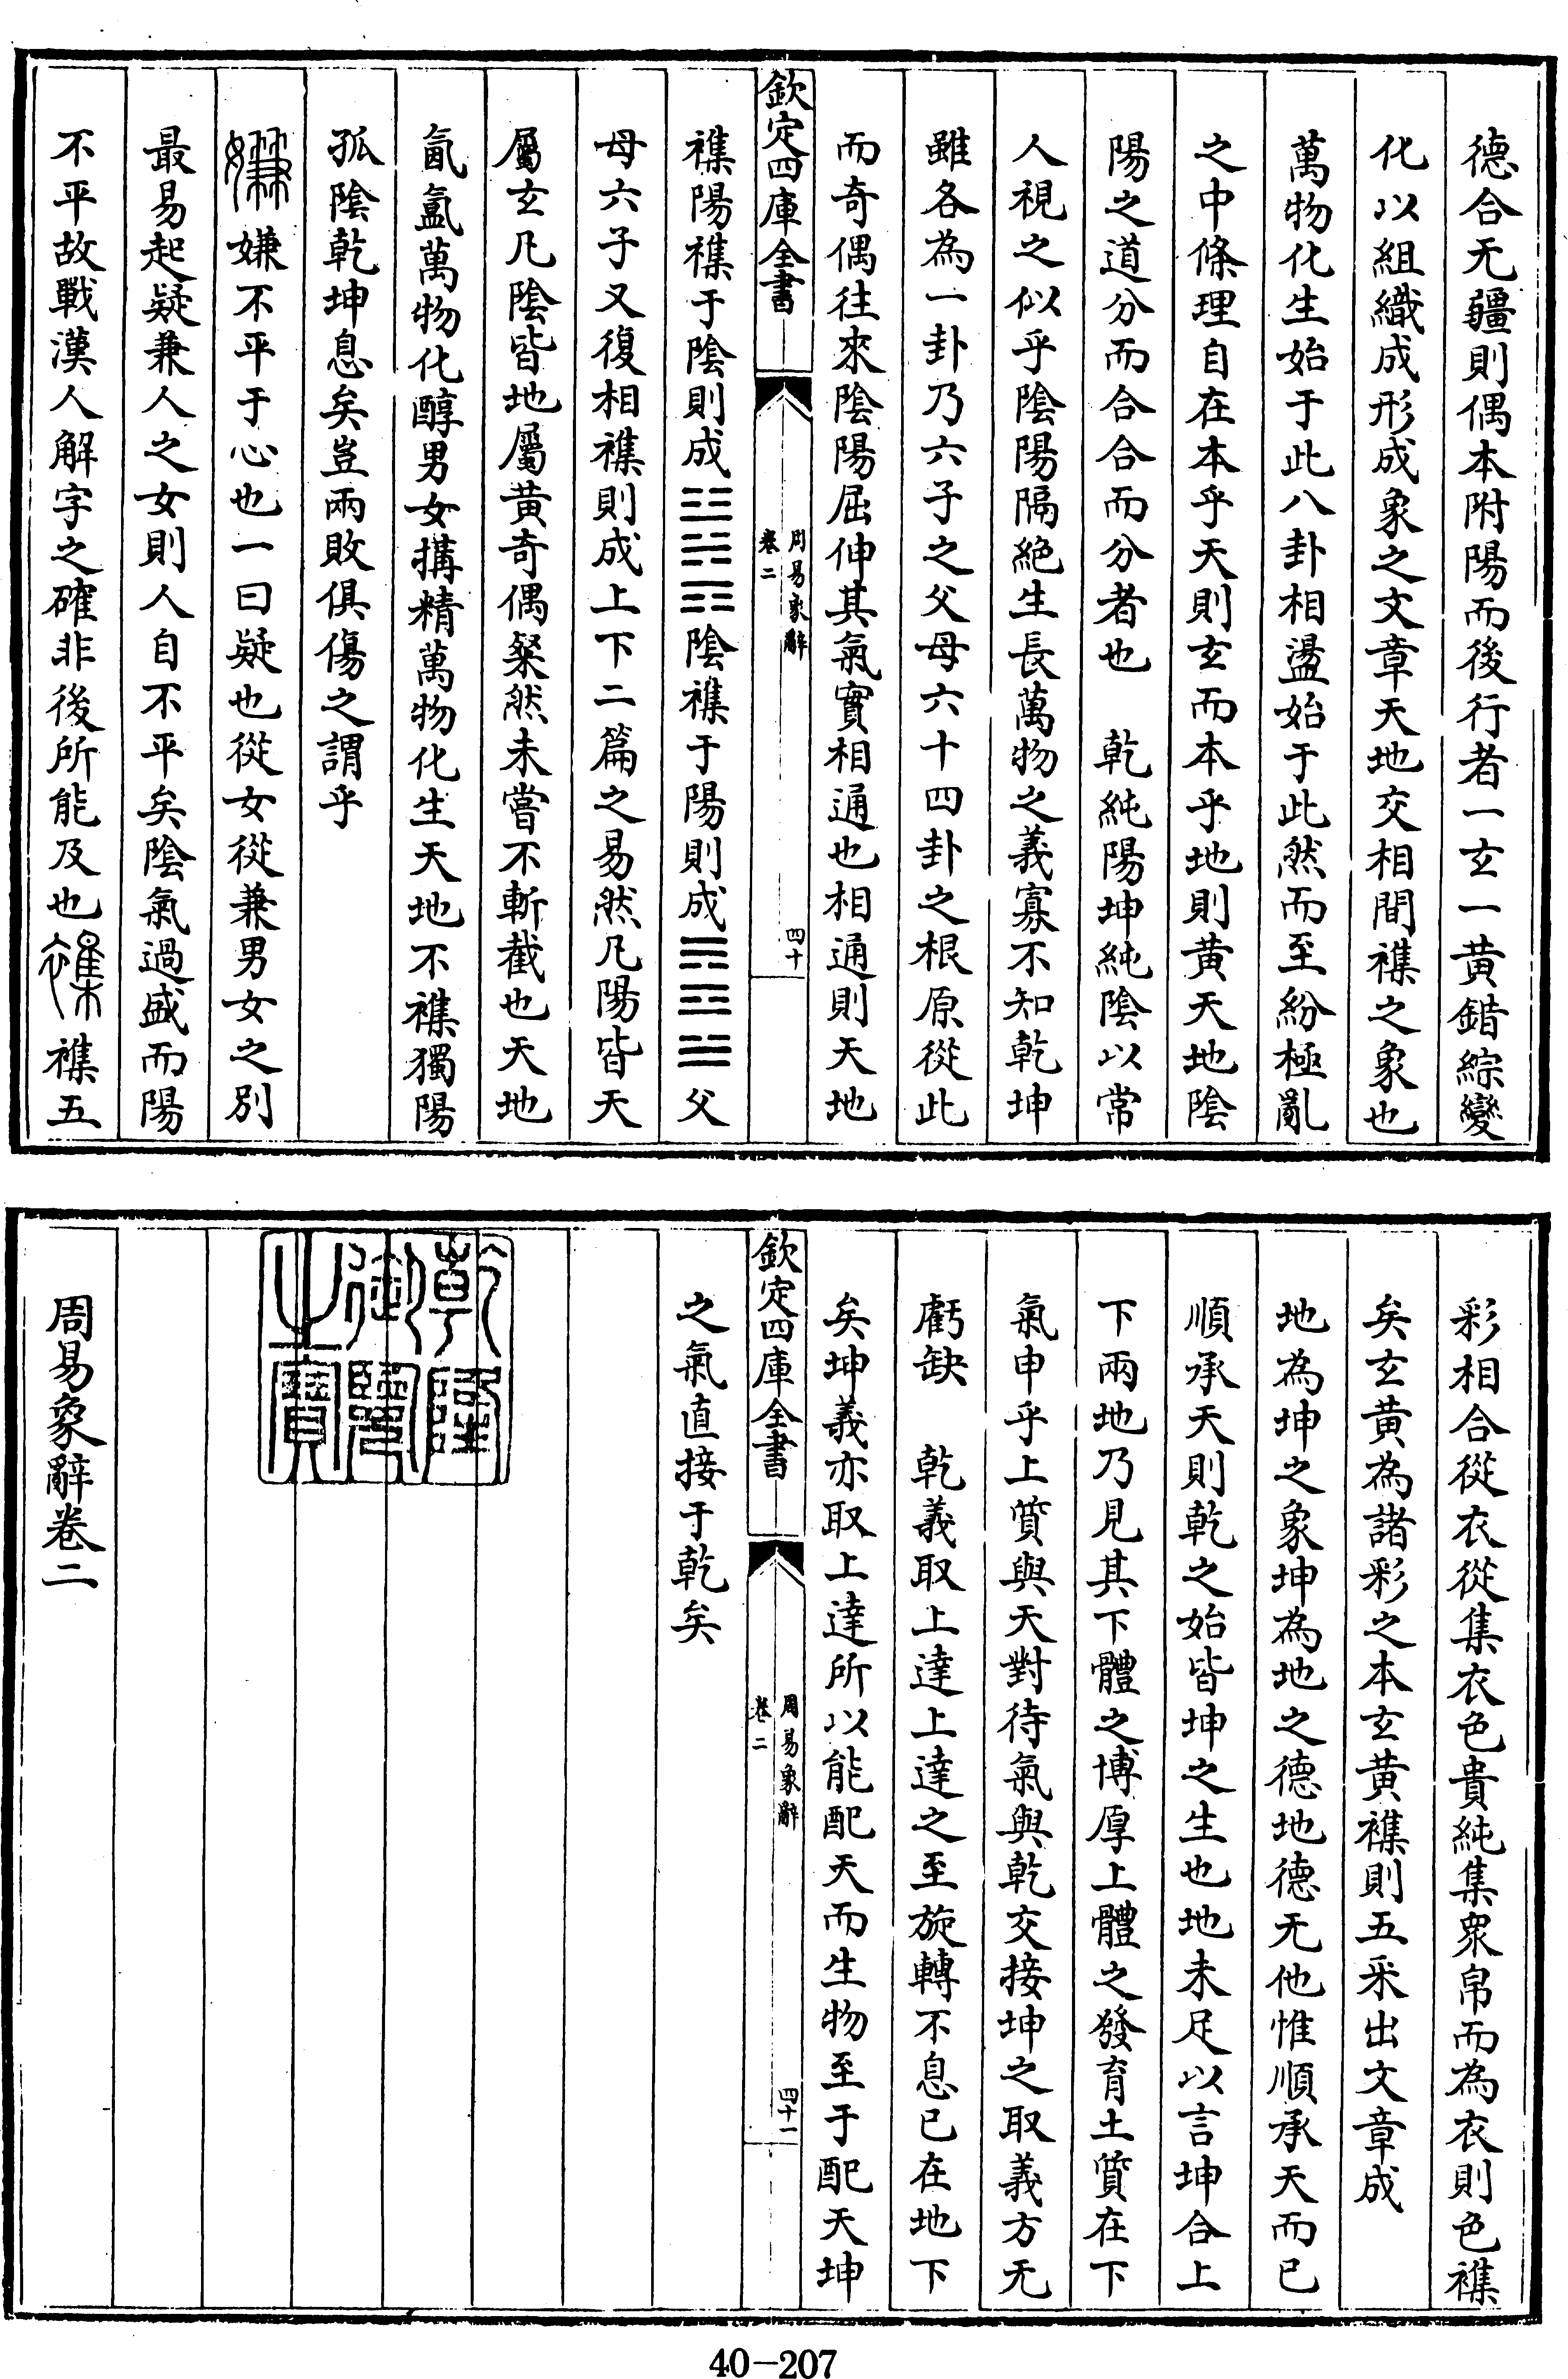 德合无疆則偶本附陽而後行者一玄一黄錯綜變
化以組織成形成象之文章天地交相間襍之象也
萬物化生始于此八卦相盪始于此然而至紛極亂
之中條理自在本乎天則玄而本乎地則黄天地陰
陽之道分而合合而分者也　乾純陽坤純陰以常
人視之似乎陰陽隔絶生長萬物之義寡不知乾坤
雖各為一卦乃六子之父母六十四卦之根原從此
而奇偶往來陰陽屈伸其氣實相通也相通則天地
欽定四庫全書
周易象辭
卷二
四十
襍陽襍于陰則成☳☵☶陰襍于陽則成☴☲☱父
母六子又復相襍則成上下二篇之易然凡陽皆天
屬玄凡陰皆地屬黄奇偶粲然未嘗不斬截也天地
氤氳萬物化醇男女搆精萬物化生天地不襍獨陽
孤陰乾坤息矣豈兩敗俱傷之謂乎
嫌嫌不平于心也一曰疑也從女從兼男女之別
最易起疑兼人之女則人自不平矣陰氣過盛而陽
不平故戰漢人解字之確非後所能及也襍襍五
彩相合從衣從集衣色貴純集衆帛而為衣則色襍
矣玄黄為諸彩之本玄黄襍則五采出文章成
地為坤之象坤為地之德地德无他惟順承天而已
順承天則乾之始皆坤之生也地未足以言坤合上
下兩地乃見其下體之博厚上體之發育土質在下
氣申乎上質與天對待氣與乾交接坤之取義方无
虧缺　乾義取上達上達之至旋轉不息已在地下
矣坤義亦取上達所以能配天而生物至于配天坤
欽定四庫全書
周易象辭
卷二
四十一
之氣直接于乾矣
乾隆御覽之寶
周易象辭卷二
40-207